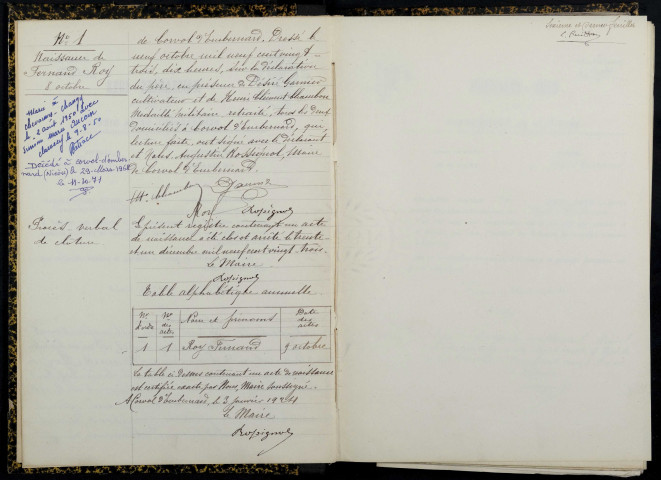 No 1
Naissance de
Fernand Roy
8 octobre
Marié à
le 2 août 1950 avec
le 9-8-50
Décédé à Corvol-d'Embernard
(Nièvre) le 29 Mars 1968
le 11-10-71
de Corvol d'Embernard. Dressé le
neuf octobre mil neuf cent vingt
trois, dix heures, sur la déclaration
du père, en présence de Désiré Garnier
cultivateur et de Henri Clément Chambon
Médaillé militaire retraité, tous les deux
domiciliés à Corvol d'Embernard, qui,
lecture faite, ont signé avec le déclarant
et Nous, Augustin Rossignol, Maire
de Corvol d'Embernard.
Hri Chambon Garnier
Roy Rossignol
Procès verbal
de clôture
Le présent registre contenant un acte
de naissance a été clos et arrêté le trente
et un décembre mil neuf cent vingt trois.
Le Maire
Rossignol
Table alphabétique annuelle
Nos d'ordre Nos des actes Nom et prénoms Date des actes
1 1 Roy Fernand 9 octobre
La table ci-dessus contenant un acte de naissance
est certifiée exacte par Nous, Maire soussigné.
A Corvol d'Embernard, le 3 janvier 1924
Le Maire
Rossignol